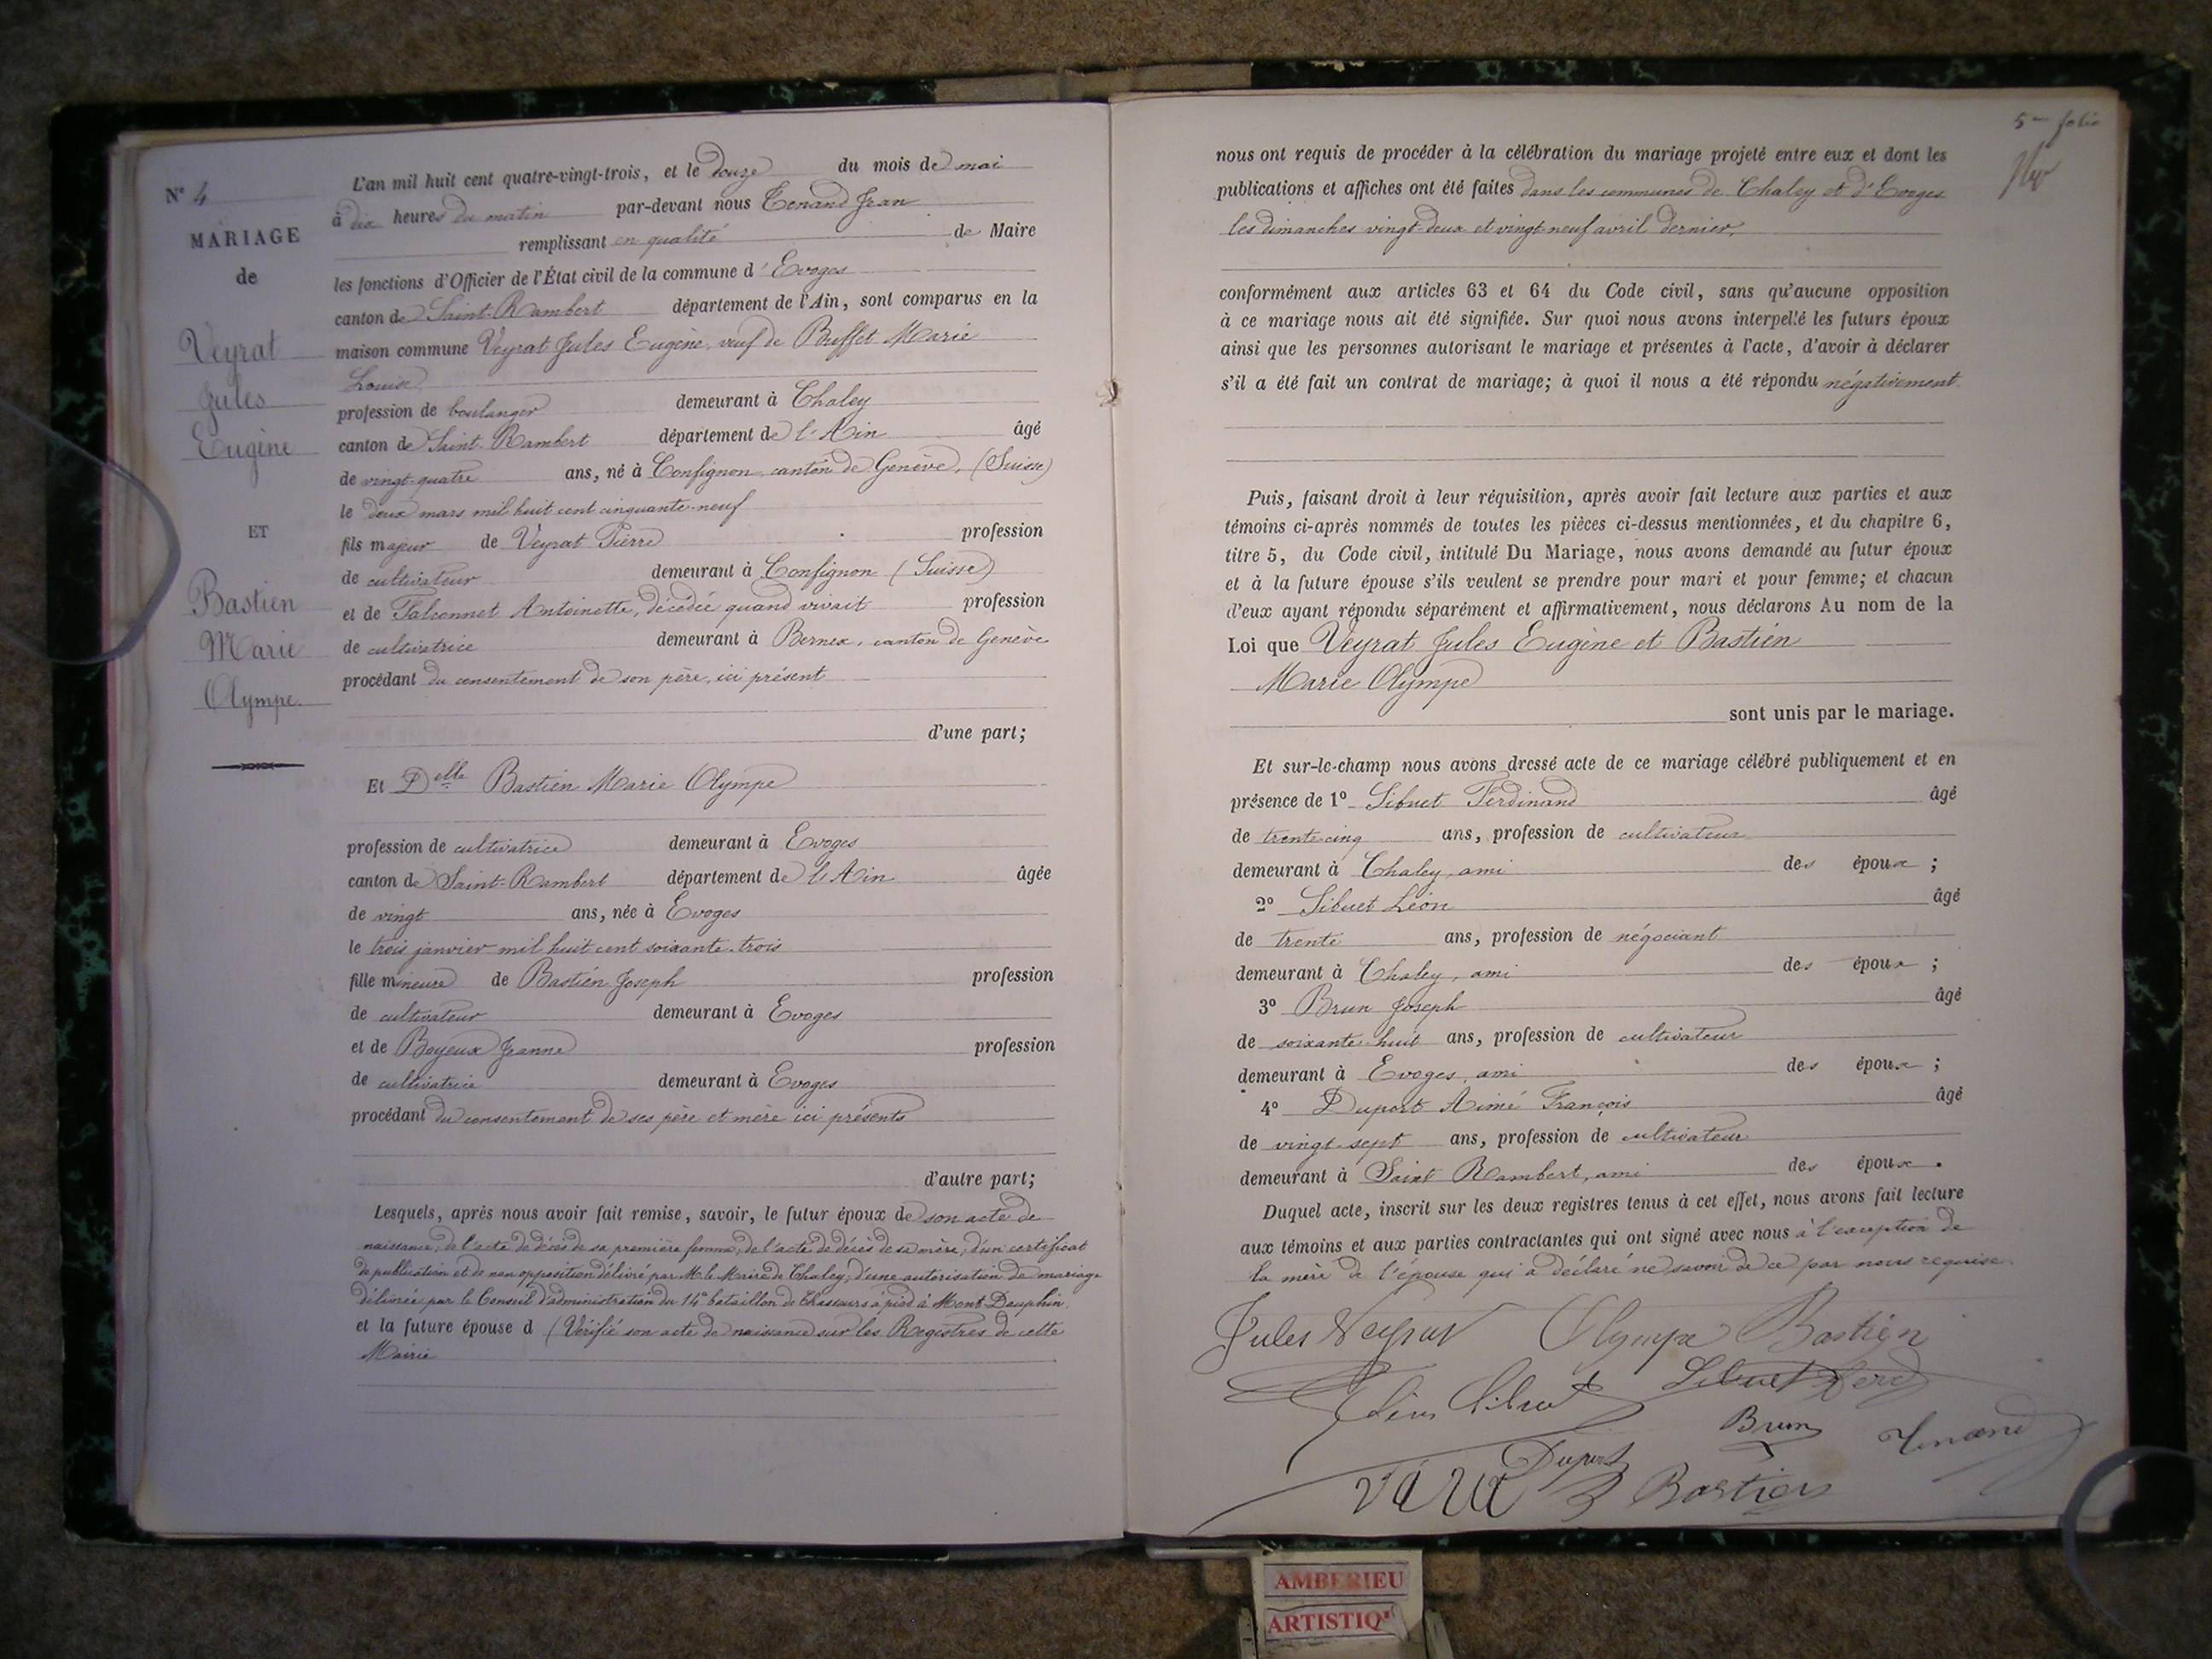 N° 4
MARIAGE
de
Veyrat
Jules
Eugène
ET
Bastien
Marie
Olympe.
L'an mil huit cent quatre-vingt-trois, et le douze du mois de mai
à dix heures du matin par-devant nous Tenand Jean
remplissant en qualité de Maire
les fonctions d'Officier de l'État civil de la commune d'Evoges
canton de Saint-Rambert département de l'Ain, sont comparus en la
maison commune Veyrat Jules Eugène, veuf de Buffet Marie
Louise
profession de boulanger demeurant à Chaley
canton de Saint-Rambert département de l'Ain âgé
de vingt-quatre ans, né à Confignon, canton de Genève, (Suisse)
le deux mars mil huit cent cinquante-neuf
fils majeur de Veyrat Pierre profession
de cultivateur demeurant à Confignon (Suisse)
et de Falconnet Antoinette, décédée quand vivait profession
de cultivatrice demeurant à Bernex, canton de Genève
procédant du consentement de son père, ici présent
d'une part;
Et Delle Bastien Marie Olympe
profession de cultivatrice demeurant à Evoges
canton de Saint-Rambert département de l'Ain âgée
de vingt ans, née à Evoges
le trois janvier mil huit cent soixante-trois
fille mineure de Bastien Joseph profession
de cultivateur demeurant à Evoges
et de Boyeux Jeanne profession
de cultivatrice demeurant à Evoges
procédant du consentement de ses père et mère ici présents
d'autre part;
Lesquels, après nous avoir fait remise, savoir, le futur époux de son acte de
naissance, de l'acte de décès de sa première femme, de l'acte de décès de sa mère, d'un certificat
de publication et de non opposition délivré par M. le Maire de Chaley, d'une autorisation de mariage
délivrée par le Conseil d'administration du 14e bataillon de Chasseurs à pied à Mont-Dauphin.
et la future épouse d (Vérifié son acte de naissance sur les Registres de cette
Mairie
5me folio
nous ont requis de procéder à la célébration du mariage projeté entre eux et dont les
publications et affiches ont été faites dans les communes de Chaley et d'Evoges
les dimanches vingt-deux et vingt-neuf avril dernier,
conformément aux articles 63 et 64 du Code civil, sans qu'aucune opposition
à ce mariage nous ait été signifiée. Sur quoi nous avons interpellé les futurs époux
ainsi que les personnes autorisant le mariage et présentes à l'acte, d'avoir à déclarer
s'il a été fait un contrat de mariage; à quoi il nous a été répondu négativement.
Puis, faisant droit à leur réquisition, après avoir fait lecture aux parties et aux
témoins ci-après nommés de toutes les pièces ci-dessus mentionnées, et du chapitre 6,
titre 5, du Code civil, intitulé Du Mariage, nous avons demandé au futur époux
et à la future épouse s'ils veulent se prendre pour mari et pour femme; et chacun
d'eux ayant répondu séparément et affirmativement, nous déclarons Au nom de la
Loi que Veyrat Jules Eugène et Bastien
Marie Olympe
sont unis par le mariage.
Et sur-le-champ nous avons dressé acte de ce mariage célébré publiquement et en
présence de 1° Sibuet Ferdinand âgé
de trente-cinq ans, profession de cultivateur
demeurant à Chaley, ami des époux ;
2° Sibuet Léon âgé
de trente ans, profession de négociant
demeurant à Chaley, ami des époux ;
3° Brun Joseph âgé
de soixante-huit ans, profession de cultivateur
demeurant à Evoges, ami des époux ;
4° Duport Aimé François âgé
de vingt-sept ans, profession de cultivateur
demeurant à Saint Rambert, ami des époux.
Duquel acte, inscrit sur les deux registres tenus à cet effet, nous avons fait lecture
aux témoins et aux parties contractantes qui ont signé avec nous à l'exception de
la mère de l'épouse qui a déclaré ne savoir de ce par nous requise.
Jules Veyrat Olympe Bastien
Léon Sibuet Sibuet Ferd
Brun Tenand
Duport
Bastien
AMBERIEU
ARTISTIQ